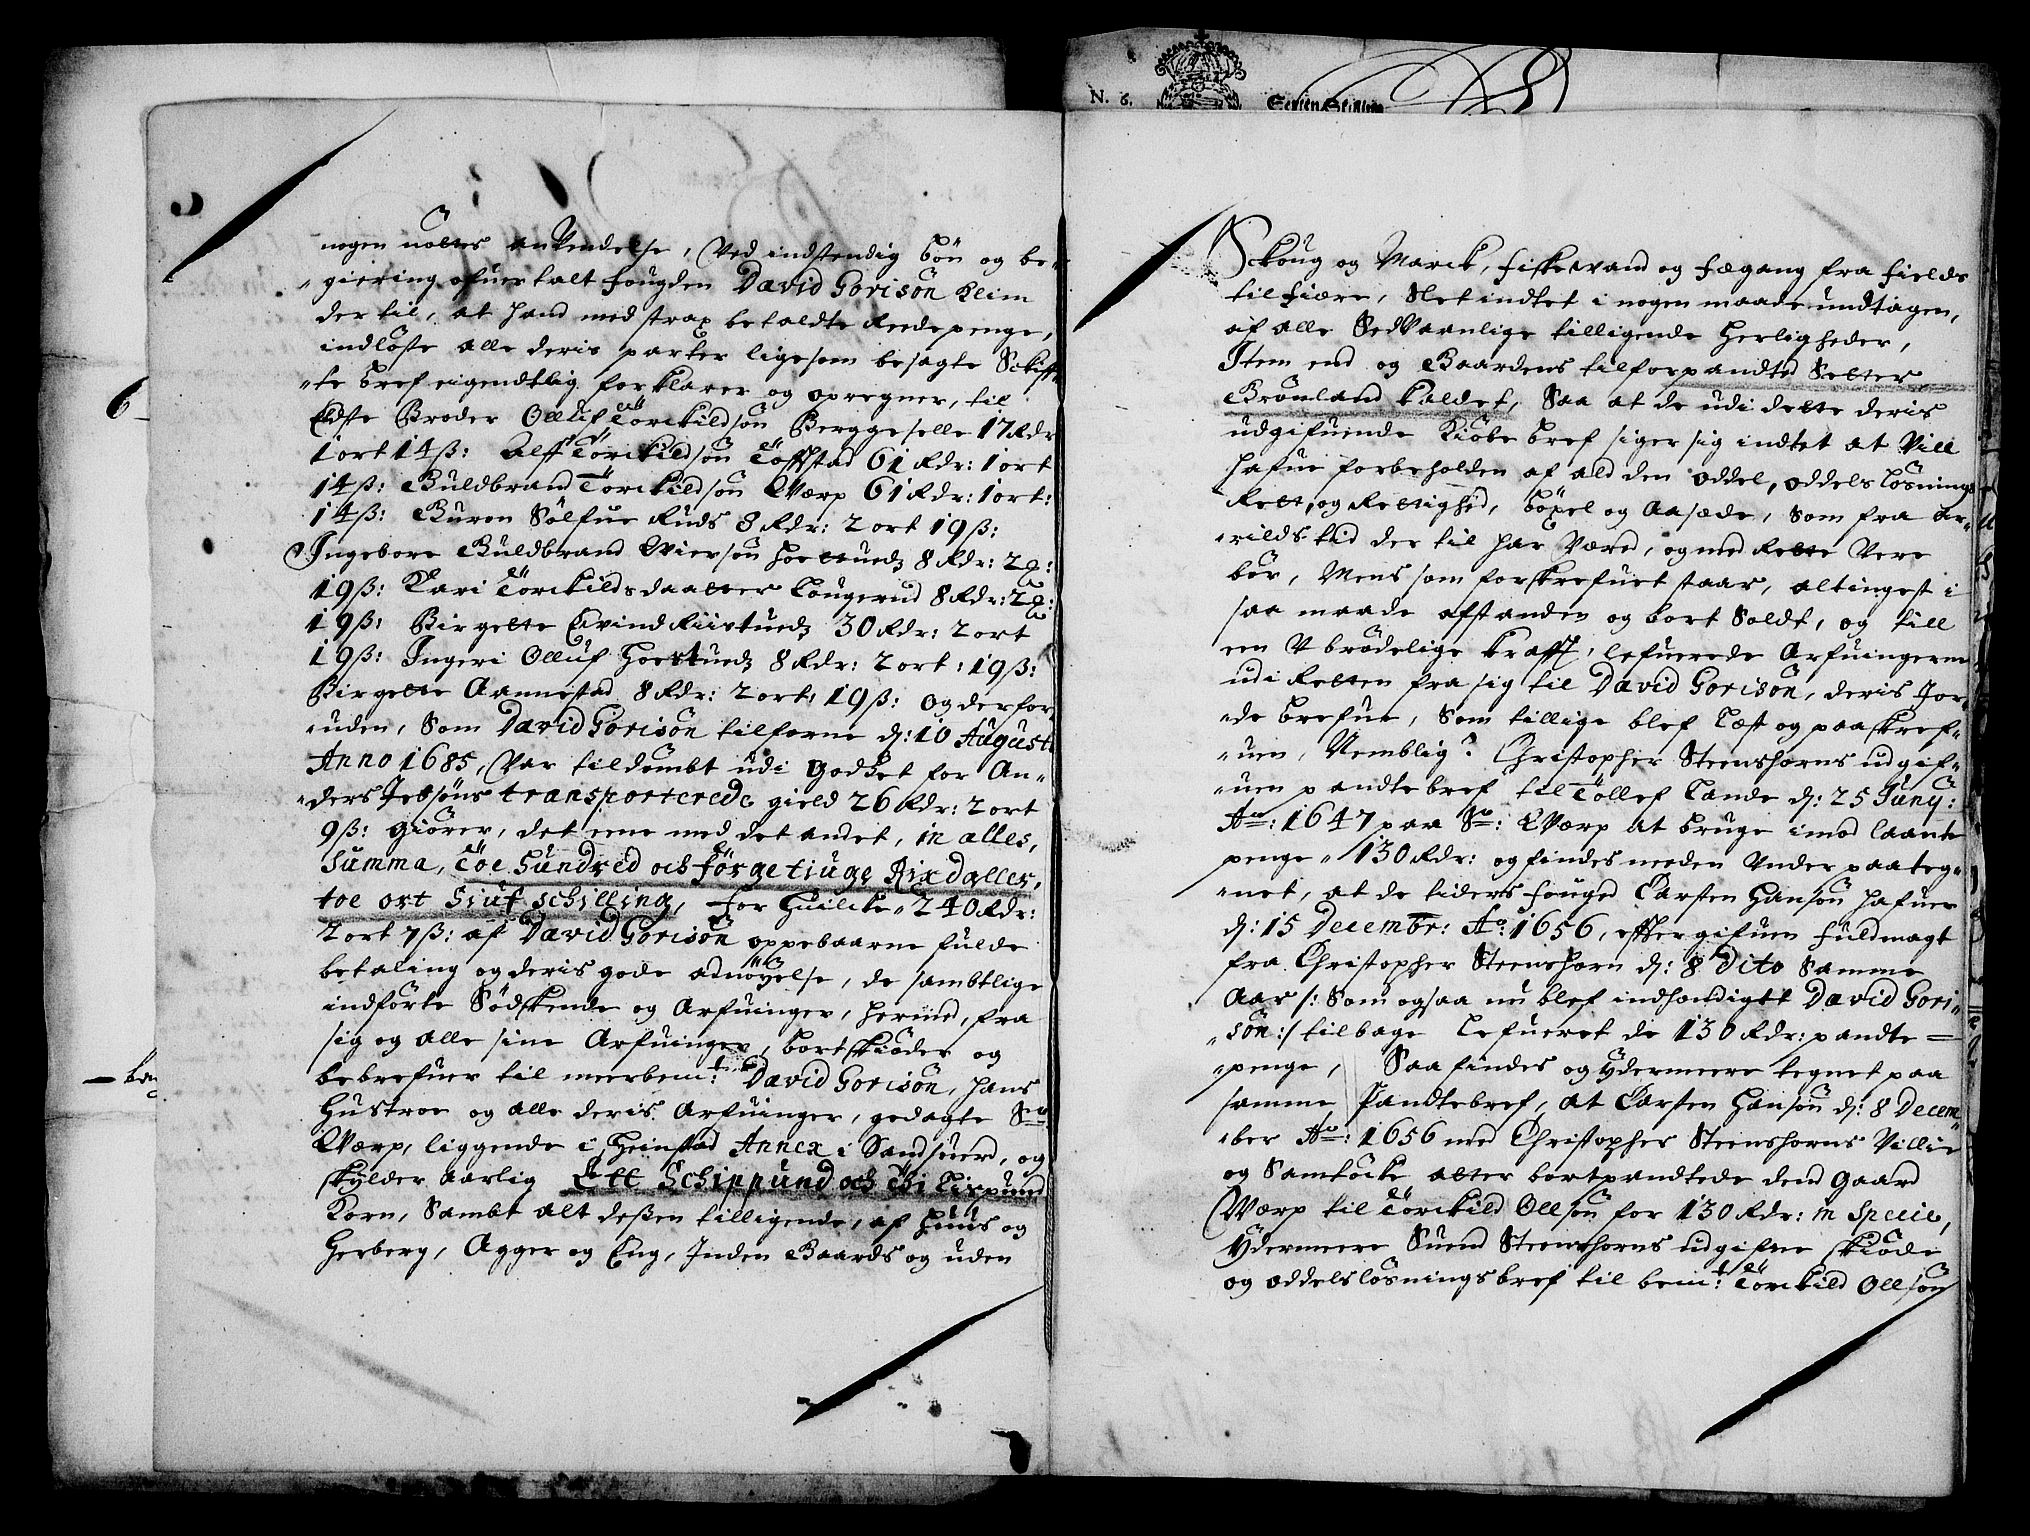 N. 6. Sexten Skilling
6
nogen nöttes anvendelse, Ved indstendig bön og be-
giering ofuertalt fougden David Gorison Klim
der til, at hand med strax betaldte Rede penge,
indlöste alle deris parter ligesom besagte Schiff-
te bref eigendtlig forklarer og opregner, til
Eldste Broder Olluf Törckildsön Berggeselle 17 Rdr
1 ort 14ß: Alff Törckildsön Toffstad 61 Rdr: 1 ort
14ß: Guldbrand Törckildsön Qværp 61 Rdr: 1 ort:
14ß: Guron Sölfue Ruds 8 Rdr: 2 ort 19ß:
Ingebore Guldbrand 8 Rdr: 2 o:
19ß: Kari Törckildsdaatter Lougerud 8 Rdr: 2 o:
19ß: Birgette Eivind 30 Rdr: 2 ort
19ß: Ingeri Olluf 8 Rdr: 2 ort: 19ß:
Birgette Aannestad 8 Rdr: 2 ort: 19ß: og der for-
uden, Som David Gorisön tilforne d: 10 Augusti
Anno 1685, Var tildömbt udi Godhet for An-
ders Jebsöns transporterede gield 26 Rdr: 2 ort
9ß: giörer, det eene med det andet, in alles,
Summa, Toe Hundred och Förgetiuge Rixdaller,
toe ort Siuf schilling, for Huilcke 240 Rdr:
2 ort 7ß: af David Gorisön oppebaarne fulde
betaling og deris gode adnöyelse, de sambtlige
indförte Södskende og Arfuinger, hermed, fra
sig og alle sine Arfuinger, bortskiöder og
bebrefuer til meerbemt: David Gorisön, hans
Hustroe og alle deris Arfuinger, gedagte
Qværp, liggende i Heinstad Annex i Sandsuerd, og
skylder aarlig Ett Schippund och Lispund
Korn, Sambt alt deßen tilligende, af Huus og
Herberg, Agger og Eng, Inden Gaards og uden
Schoug og Marck, fiskevand og fægang fra fields
til fiære, Slet indtet i nogen maade undtagen,
af alle Sedvaanlige tilligende Herligheder,
Item end og Gaardens tilforpandted Setter
Brönland kaldet, Saa at de udi dette deris
udgifuende Kiöbe bref siger sig indtet at vill
hafue forbeholden af ald den oddel, oddels lösnings
Rett, og Rettighed, böxel og Aasæde, Som fra Ar-
rilds tid der til har Væred, og med Rette Vere
bör, Mens som forskrefuet staar, altingest i
saa maade afstanden og bort Soldt, og till
een Ubrödelige krafft, lefuerede Arfuingerne
udi Retten fra sig til David Gorisön, deris Jor-
de brefue, Som tillige blef Læst og paaskref-
uen, Nemblig? Christopher Steenshorns udgif-
uen pandtebref til Töllef Lande d: 25 Juny:
Ao: 1647 paa Qværp at bruge imod laante
penge 130 Rdr: og findes neden Under paateg-
net, at de tiders fouged Carsten Hansön hafuer
d: 15 Decembr: Ao: 1656, effter gifuen fuldmagt
fra Christopher Steenshorn d: 8 Dito Samme
Aar /: Som ogsaa nu blef indhændigtt David Gori-
sön:/ tilbage lefueret de 130 Rdr: pandte=
penge, Saa findes og Ydermeere tegnet paa
samme Pandtebref, at Carsten Hansön d: 8 Decem-
ber Ao: 1656 med Christopher Steenshorns Villie
og Samtöcke atter bortpandtede den gaard
Qværp til Törckild Ollsön for 130 Rdr: in Specie,
Ydermeere Suend Steenshorns udgifne Skiöde
og oddelslösningsbref til bemt: Törckild Ollsön